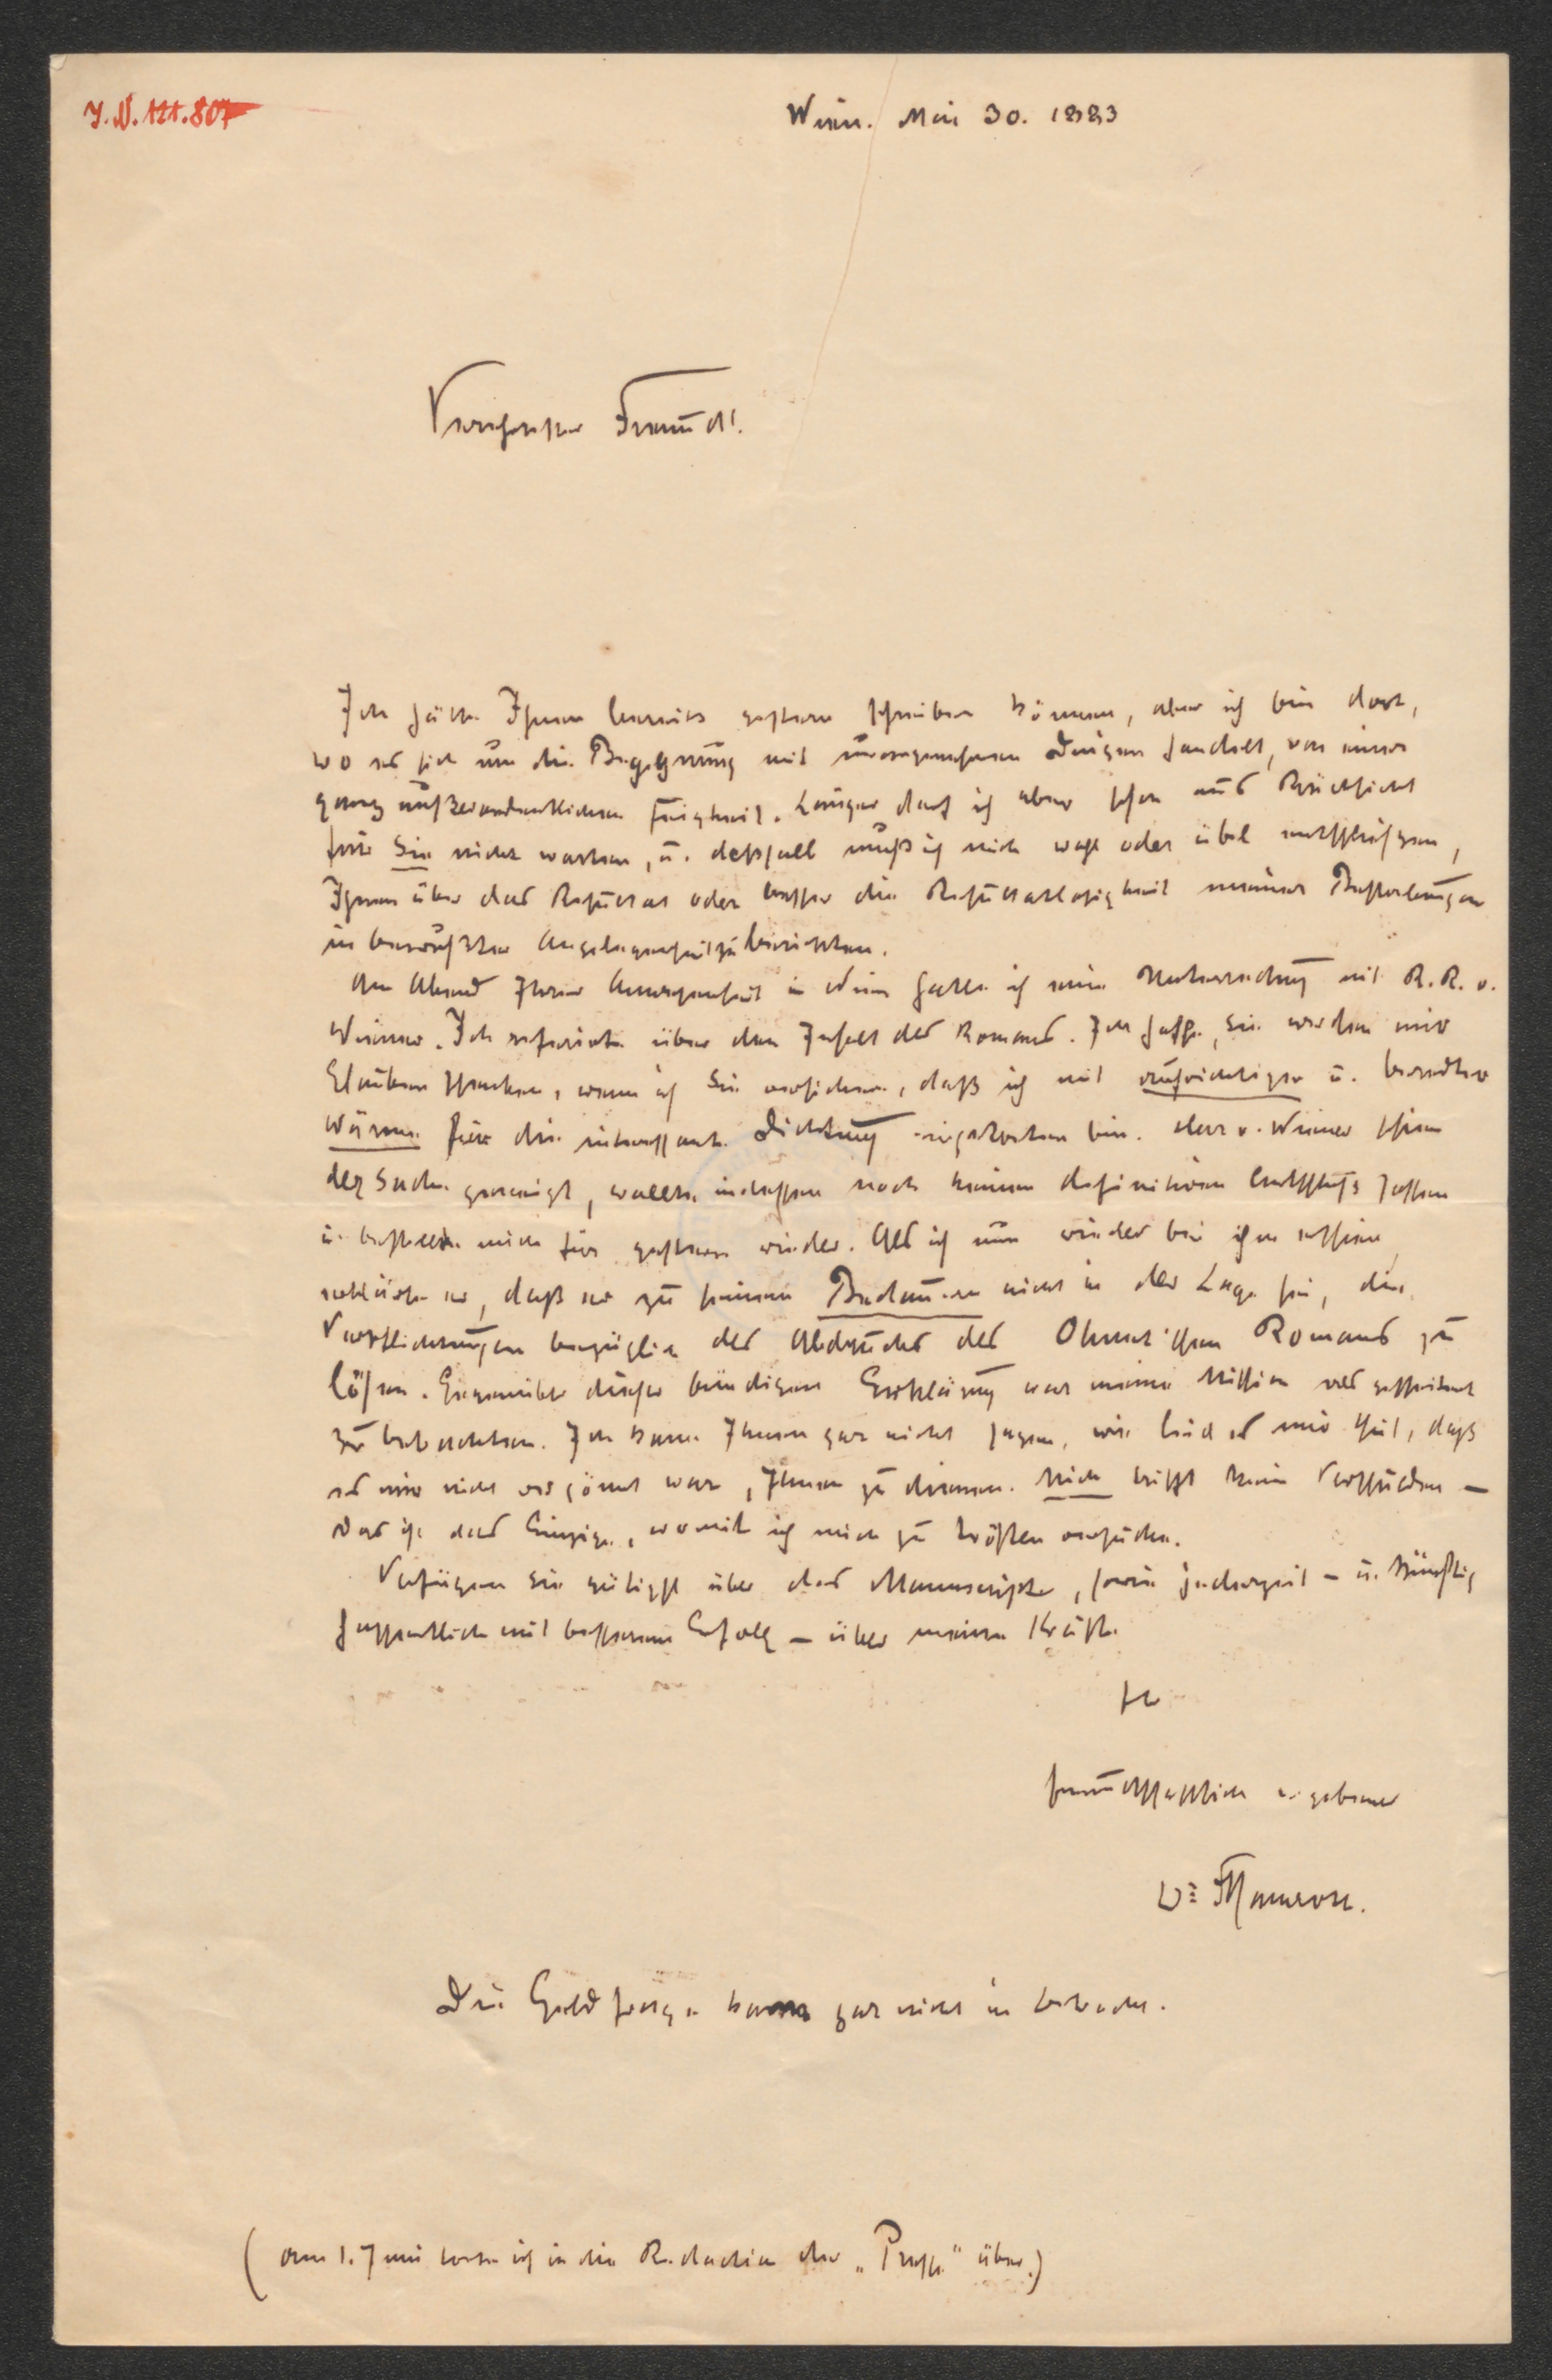 J.N. 121.807
Wien. Mai 30. 1883
Verehrtester Freund!
Ich hätte Ihnen bereits gestern schreiben können, aber ich bin dort,
wo es sich um die Begegnung mit unangenehmen Dingen handelt, von einer
ganz außerordentlichen Feigheit. Länger darf ich aber schon aus Rücksicht
für Sie nicht warten, u. deßhalb muß ich mich wohl oder übel entschließen,
Ihnen über das Resultat oder besser die Resultatlosigkeit meiner Bestrebungen
in bewußter Angelegenheit zu berichten.
Am Abend Ihrer Anwesenheit in Wien hatte ich eine Unterredung mit R. R. v.
Wiener. Ich referirte über den Inhalt des Romans. Ich hoffe, Sie werden mir
Glauben schenken, wenn ich Sie versichere, daß ich mit aufrichtiger u. beredter
Wärme für die interessante Dichtung eingetreten bin. Herr v. Wiener schien
der Sache geneigt, wollte indessen noch keinen definitiven Entschluß fassen
u. bestellte mich für gestern wieder. Als ich nun wieder bei ihm erschien,
erklärte er, daß er zu seinem Bedauern nicht in der Lage sei, die
Verpflichtungen bezüglich des Abdruckes des Ohnet'schen Romans zu
lösen. Gegenüber dieser bündigen Erklärung war meine Mission als gescheitert
zu betrachten. Ich kann Ihnen gar nicht sagen, wie leid es mir thut, daß
es mir nicht vergönnt war, Ihnen zu dienen. Mich trifft kein Verschulden –
das ist das Einzige, womit ich mich zu trösten versuche.
Verfügen Sie gütigst über das Manuscript, sowie jederzeit – u. künftig
hoffentlich mit besserem Erfolg – über meine Kräfte.
Ihr
freundschaftlich ergebener
Die Geldfrage kam gar nicht in Betracht.
(Am 1. Juni trete ich in die Redaction der „Presse" über.)